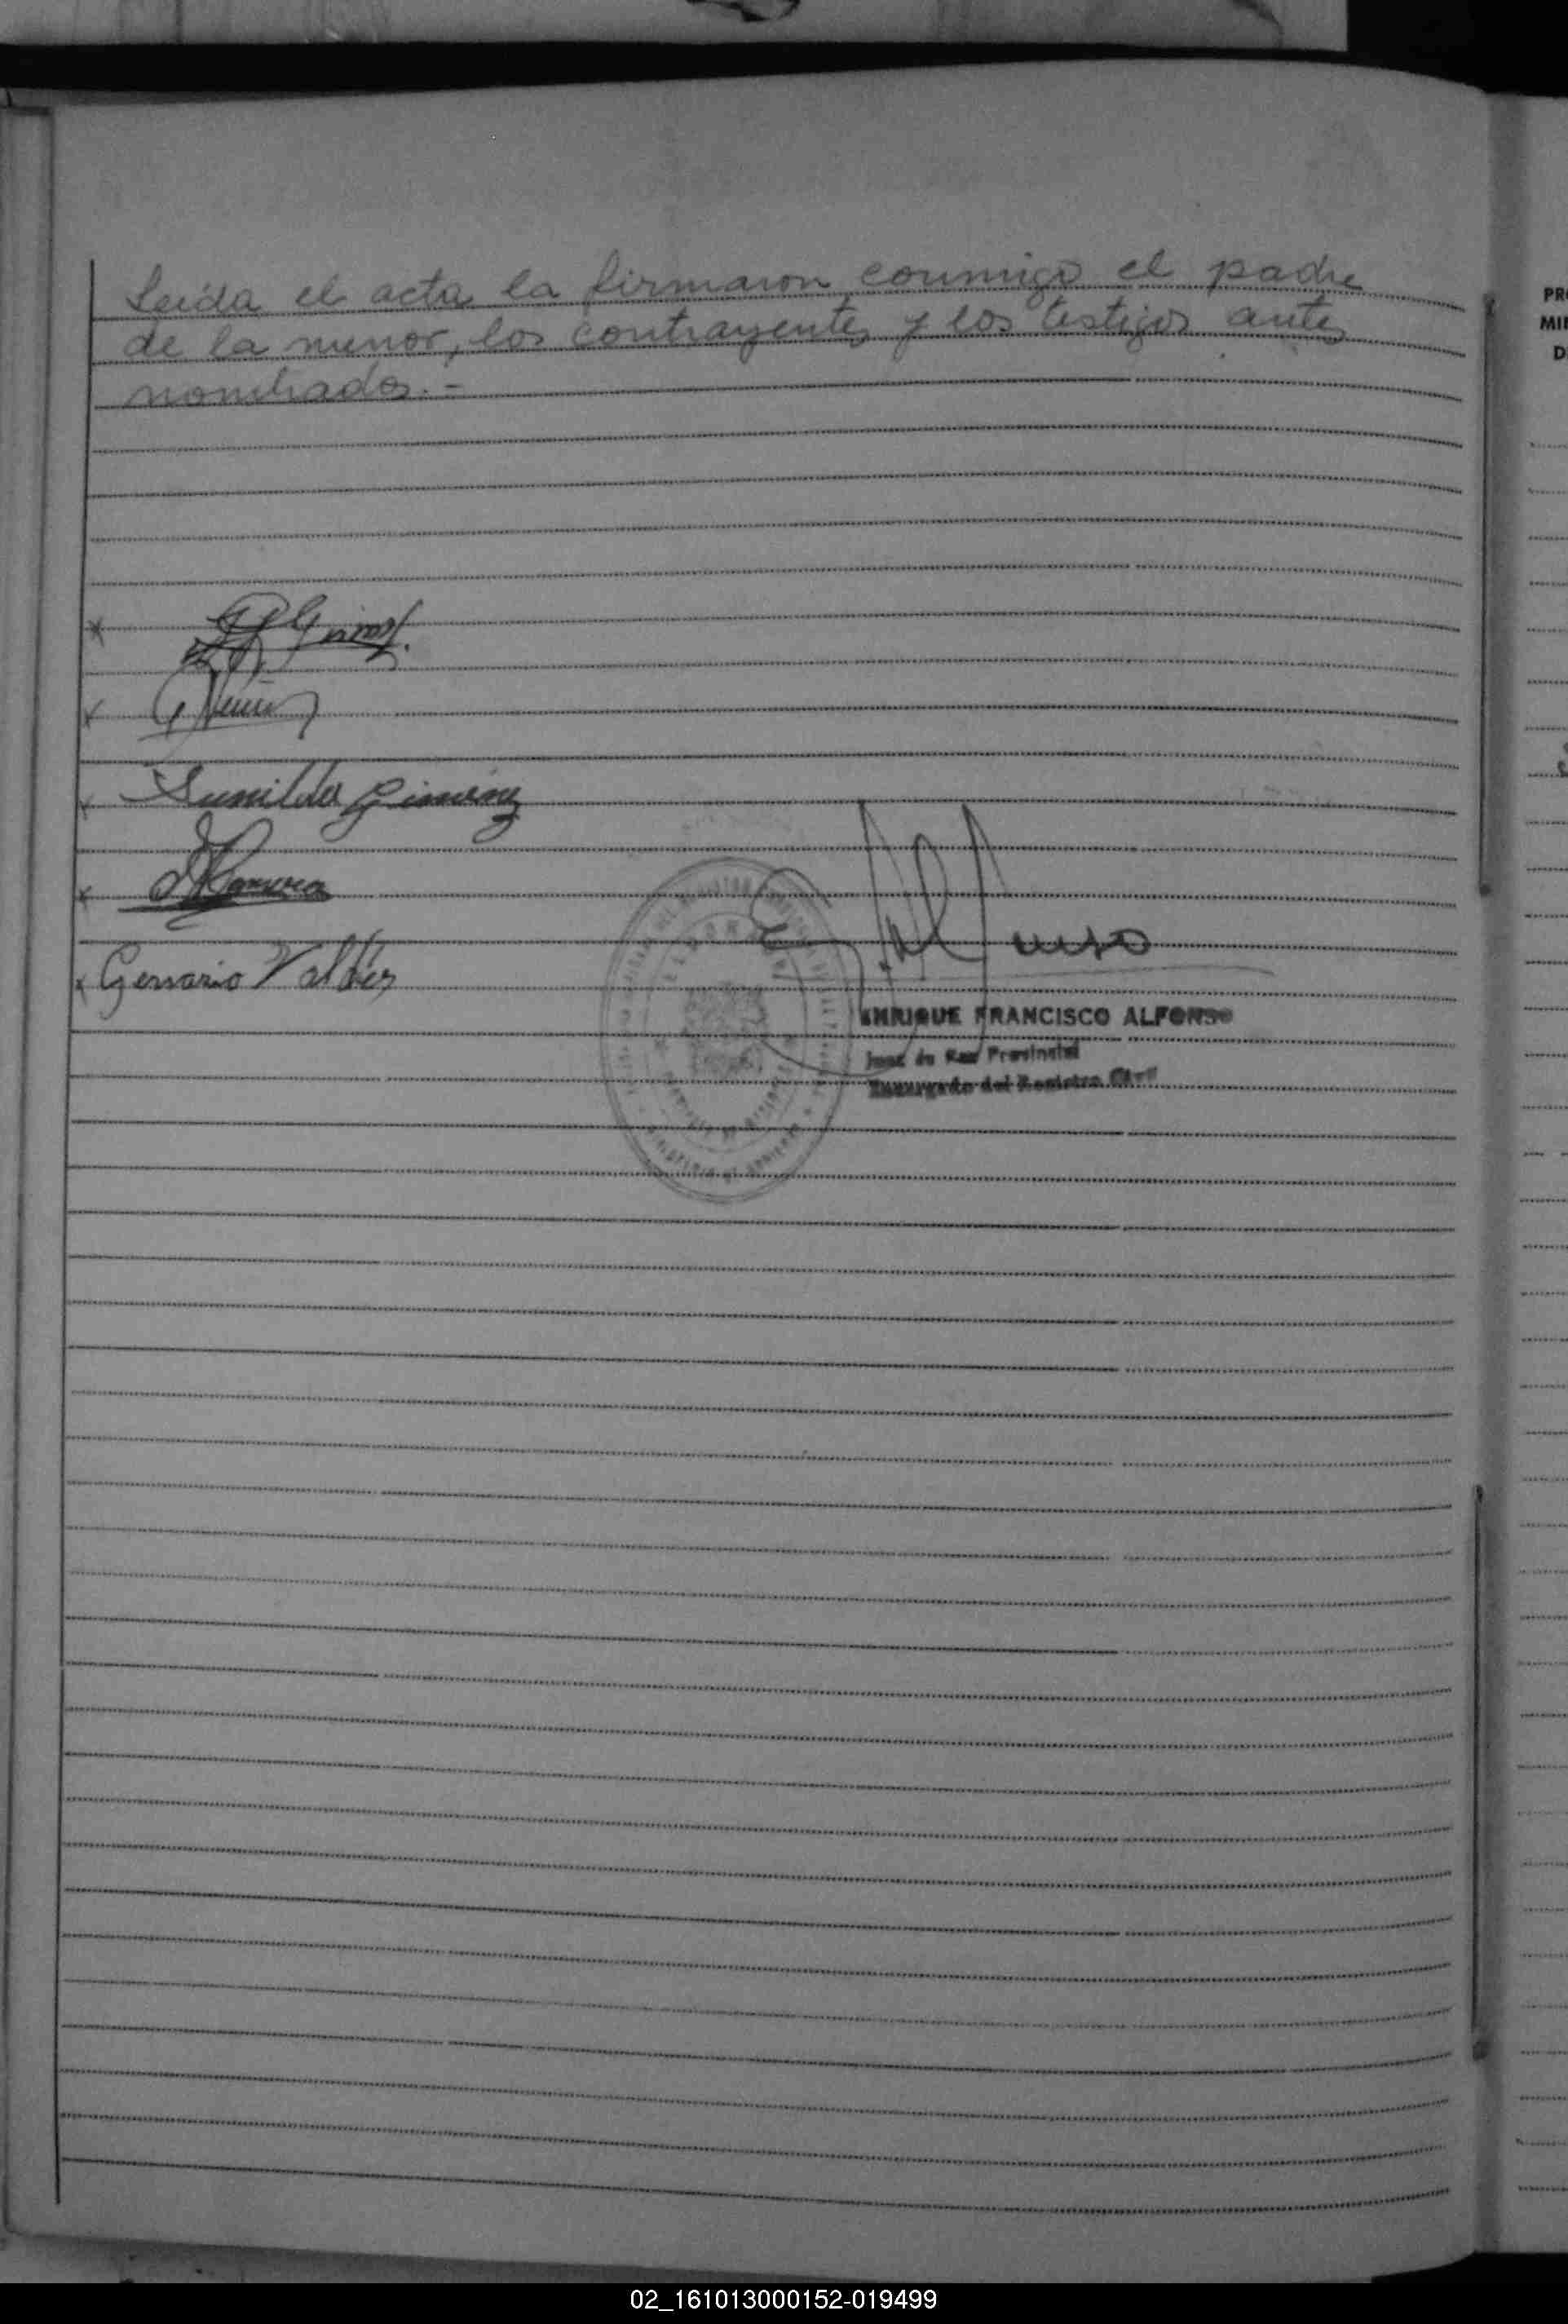 Leida el acta la firmaron conmigo el padre
de la menor, los contrayentes y los testigos antes
nombrados.-
Sunilda Gimenez
Genario Valdéz
ENRIQUE FRANCISCO ALFONSO
Juez de Paz Provincial
Encargado del Registro Civil
PR
MI
D
02_161013000152-019499